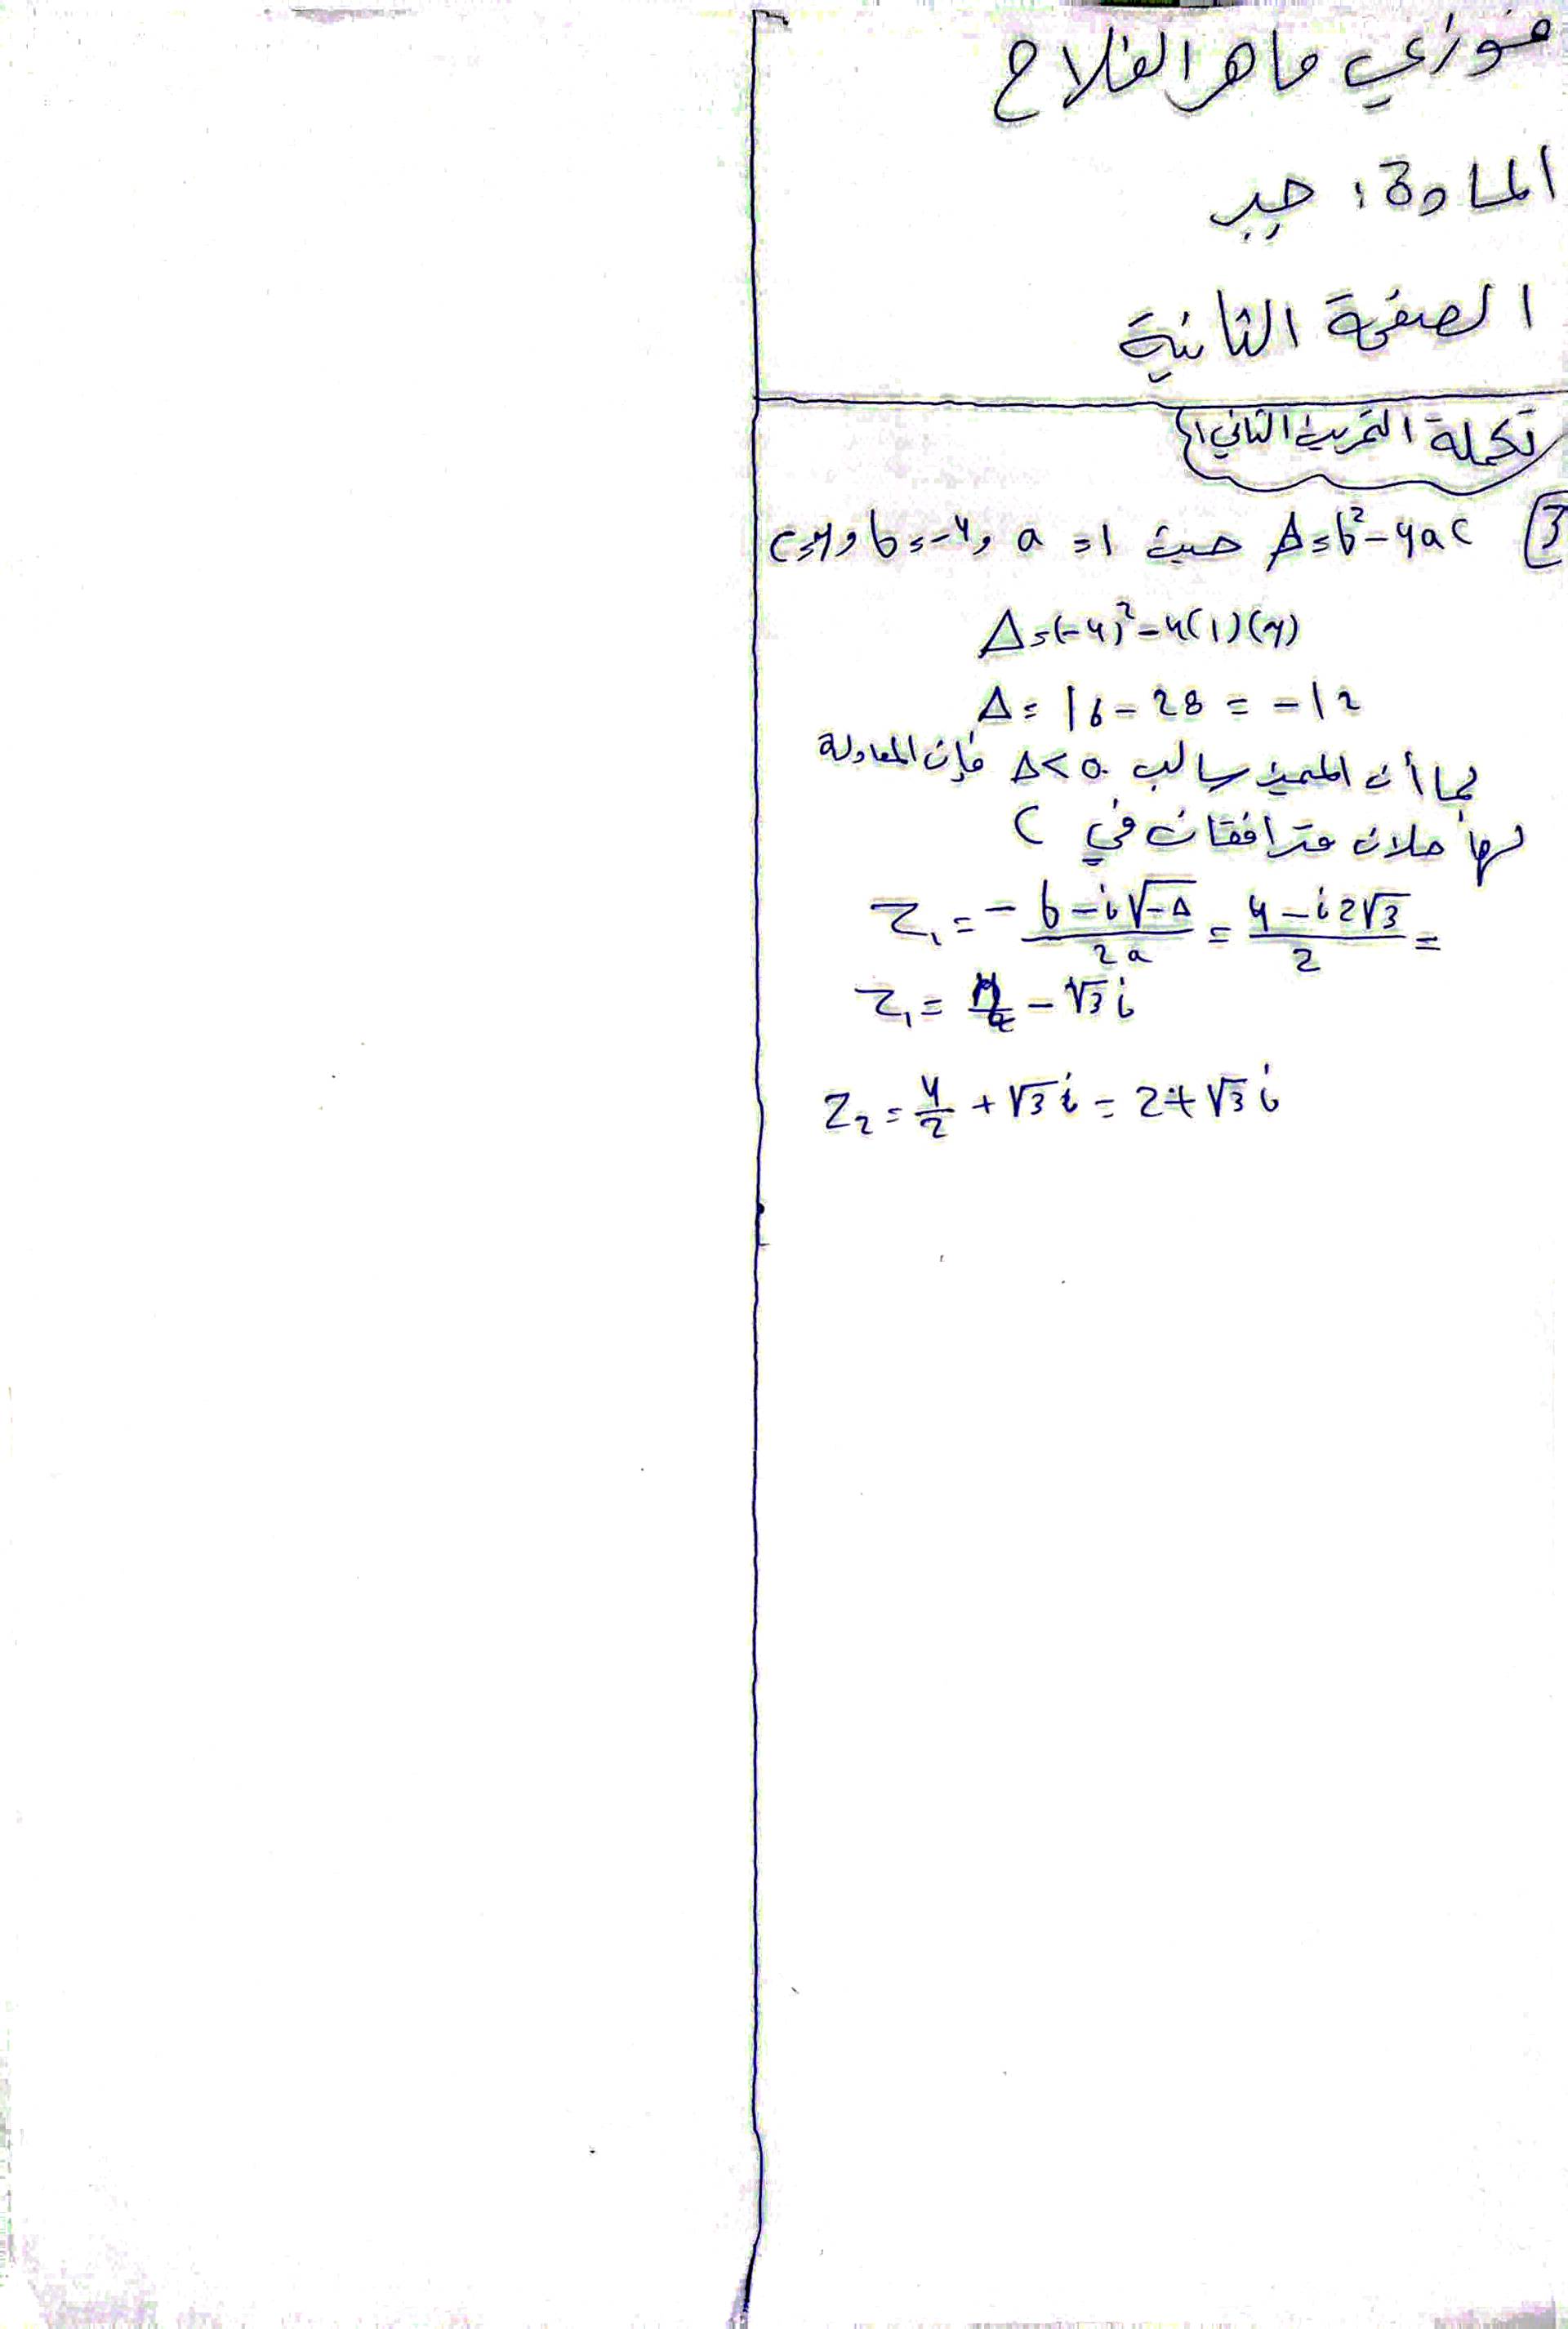 فوزي ماهر الفلاح
المادة: جبر
الصفحة الثانية
تكملة التمرين الثاني:
3 Δ=b²-4ac حيث a=1 و b=-4 و c=7
Δ=(-4)²-4(1)(7)
Δ=16-28=-12
بما أن المميز سالب Δ<0 فإن المعادلة
لها حلان مترافقان في C
Z₁=-b-i√-Δ/2a=4-i2√3/2=
Z₁= -√3i
Z₂=4/2+√3i=2+√3i